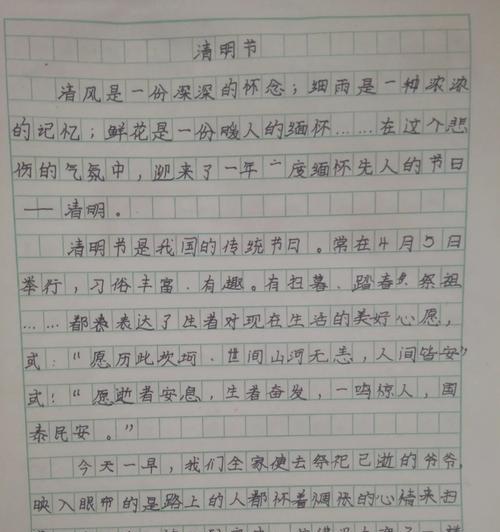 清明节
清风是一份深深的怀念；细雨是一种浓浓
的记忆；鲜花是一份暖人的缅怀……在这个悲
伤的气氛中，迎来了一年一度缅怀先人的节日
——清明。
清明节是我国的传统节日。常在4月5日
举行，习俗丰富、有趣。有扫墓、踏春、祭祖
……都表达了生者对现在生活的美好心愿，
或：“愿历此坎坷、世间山河无恙，人间皆安”
或：“愿逝者安息，生者奋发，一鸣惊人，国
泰民安。”
今天一早，我们全家便去祭祀已逝的爷爷，
映入眼帘的是路上的人都怀着惆怅的心情来扫